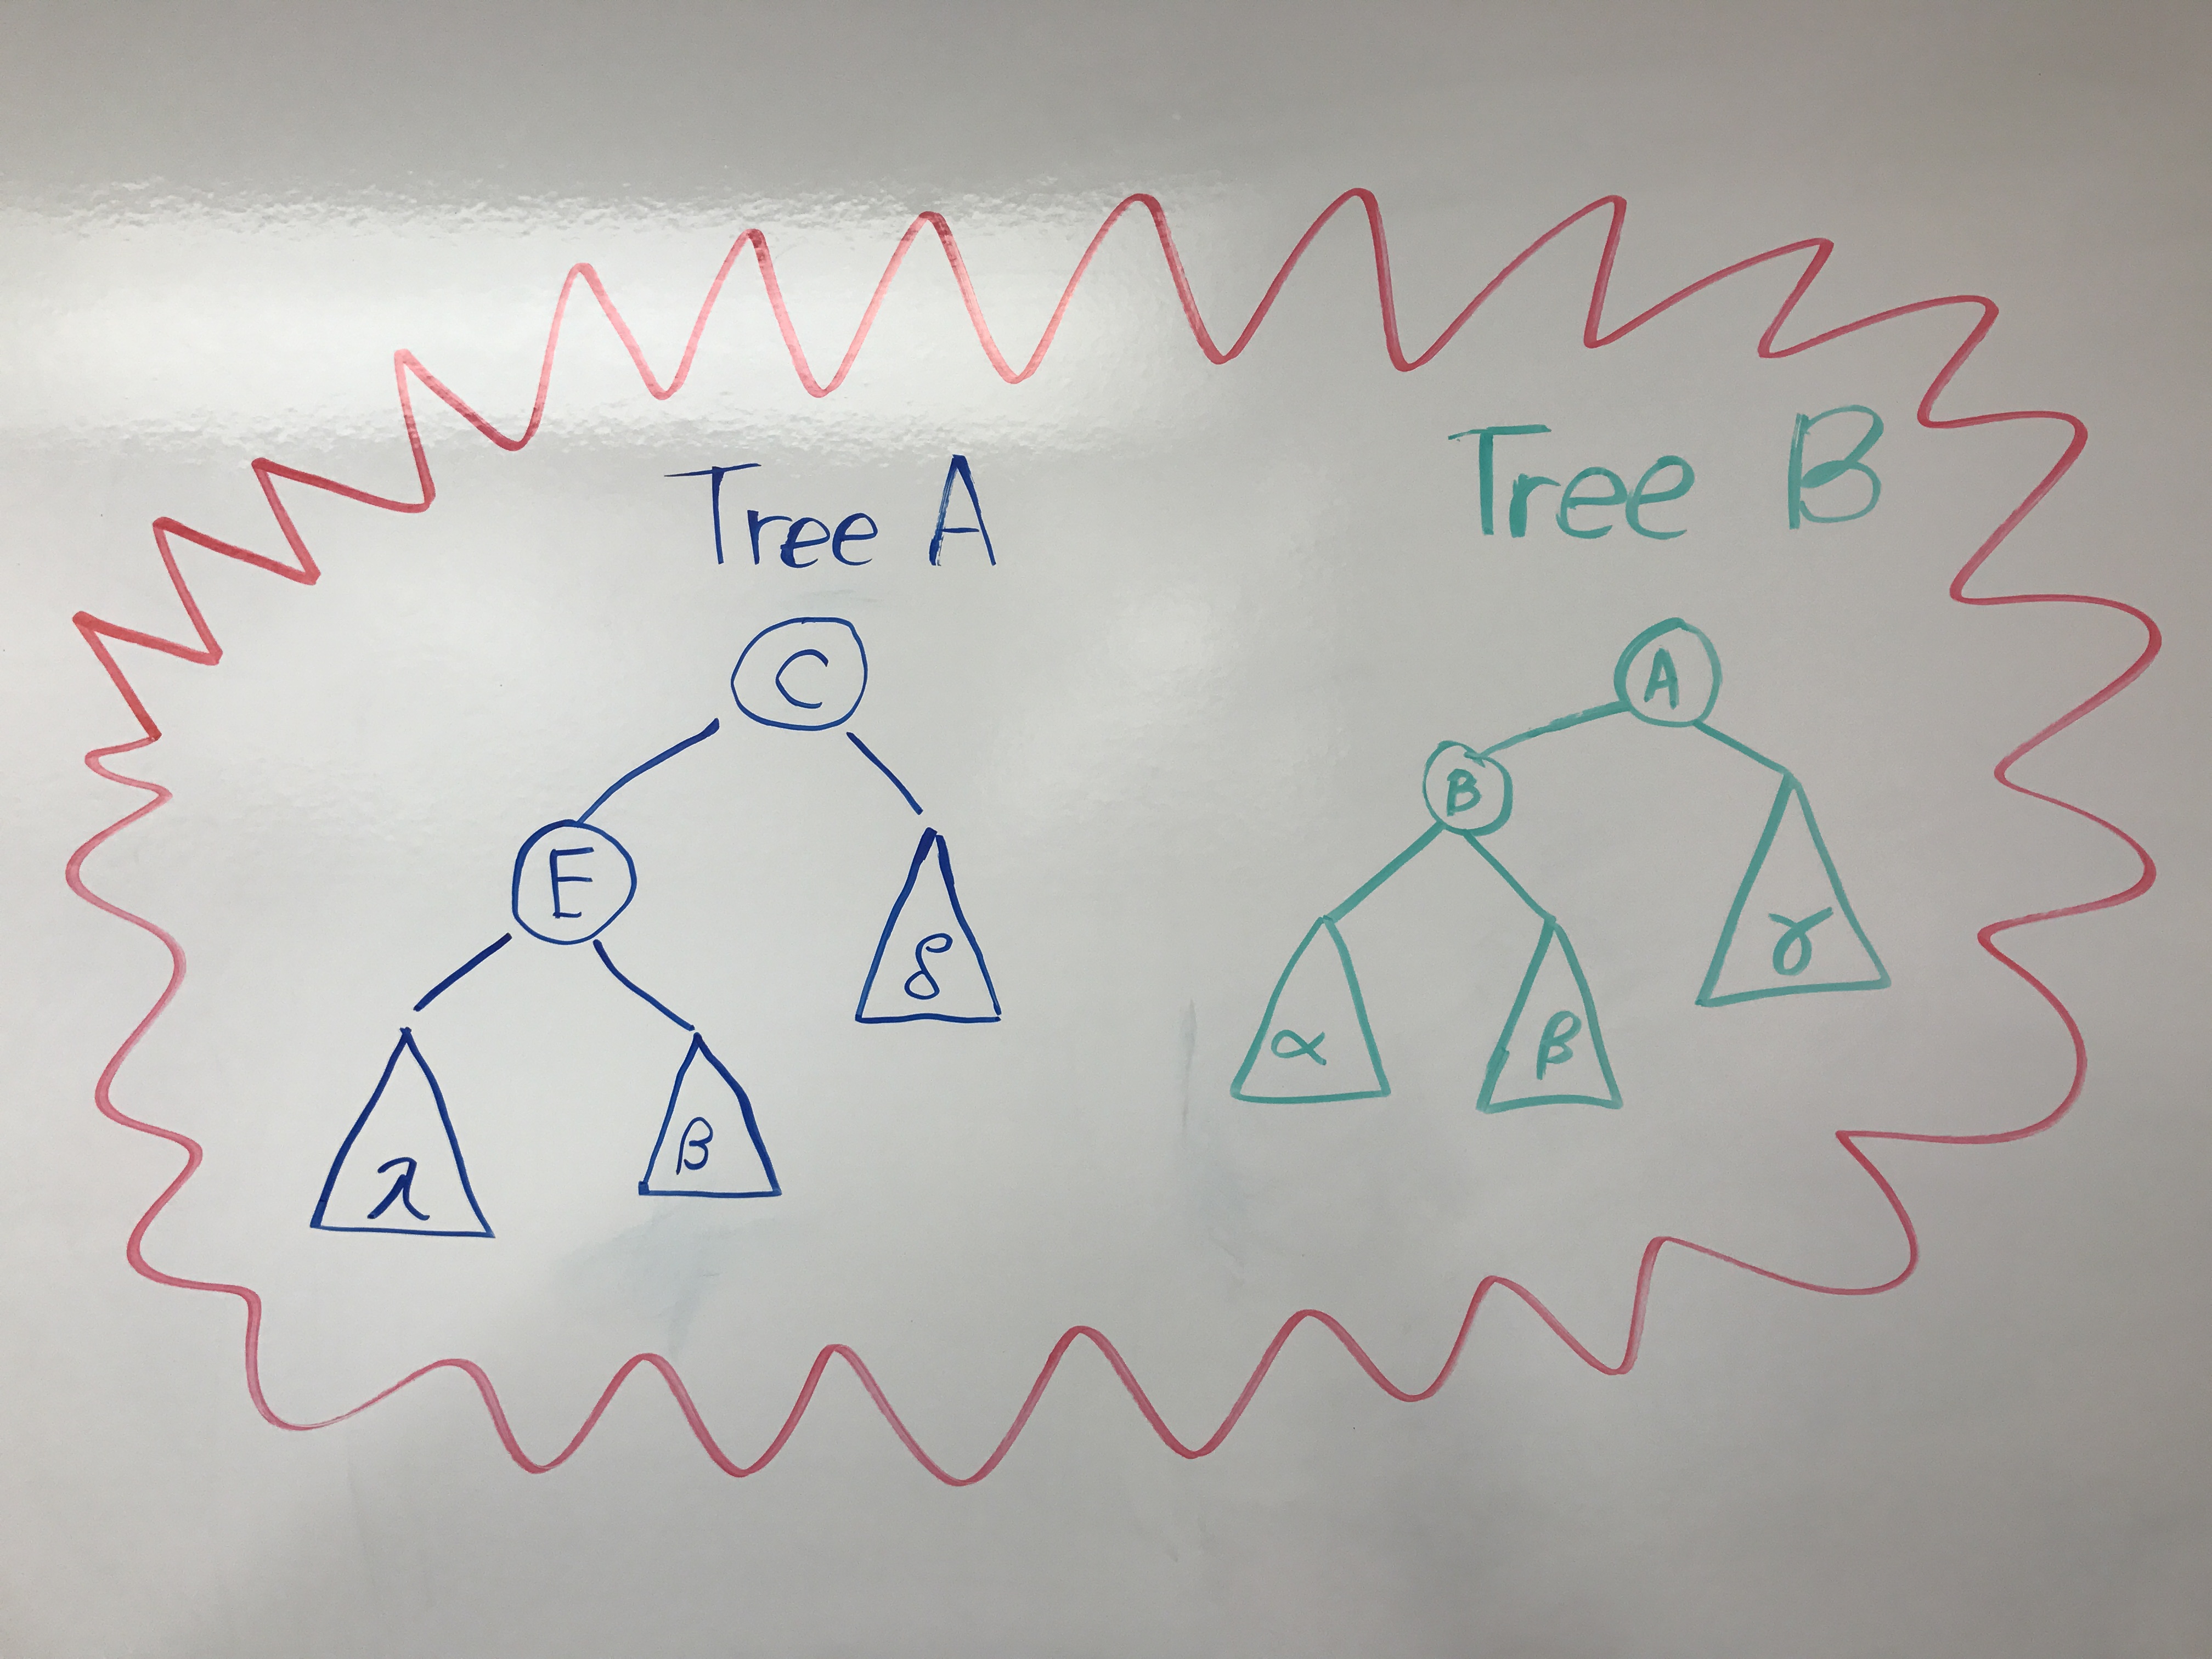 Tree A
C
E
δ
λ
β
Tree B
A
B
γ
α
β